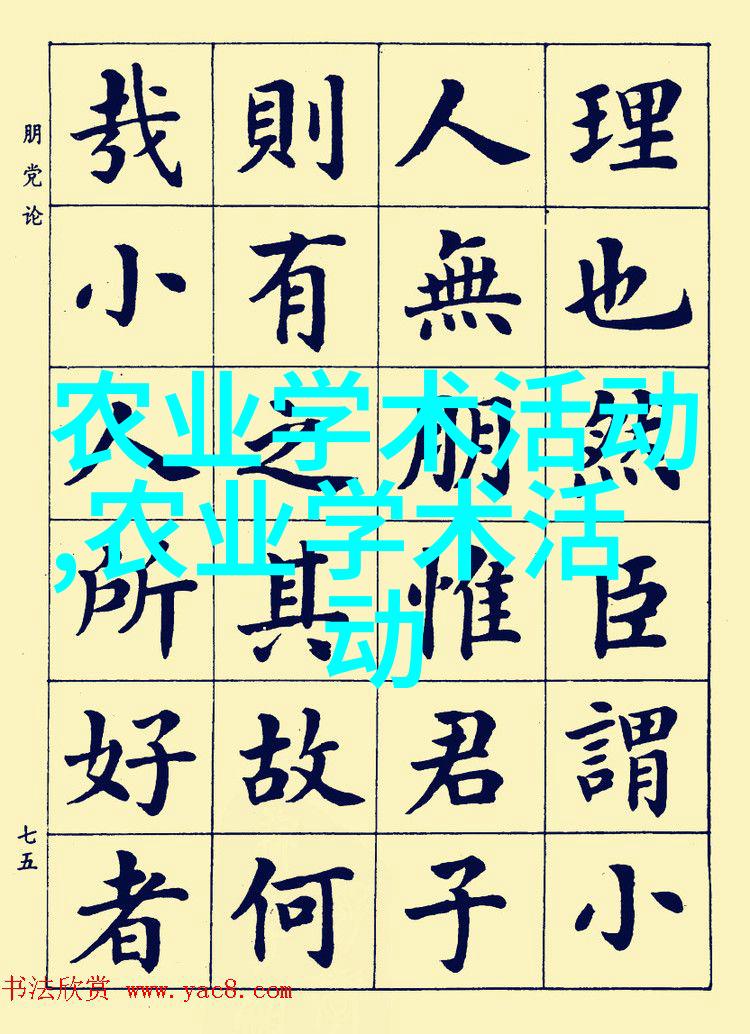 理也然臣謂小
人無朋惟君子
則有之其故何
哉小人所好者
朋党论
七五
农业学术活动
,农业学术活
动
书法欣赏 www.yac8.com